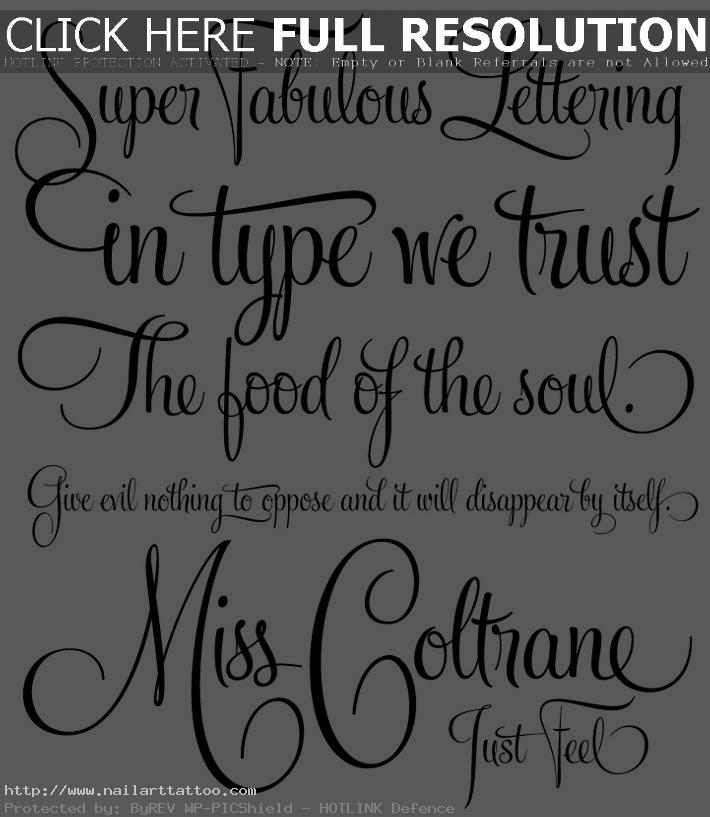 CLICK HERE FULL RESOLUTION
HOTLINK PROTECTION ACTIVATED - NOTE: Empty or Blank Referrals are not Allowed
Super Fabulous Lettering
in type we trust
The food of the soul.
Give evil nothing to oppose and it will disappear by itself.
Miss Coltrane
Just Feel
http://www.nailarttattoo.com
Protected by: ByREV WP-PICShield - HOTLINK Defence